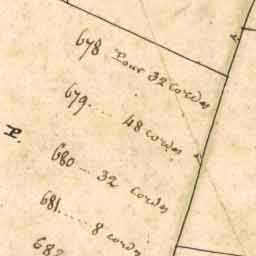 678 Pour 32 cordes
679.... 48 cordes
P.
680... 32 cordes
681.... 8 cordes
682